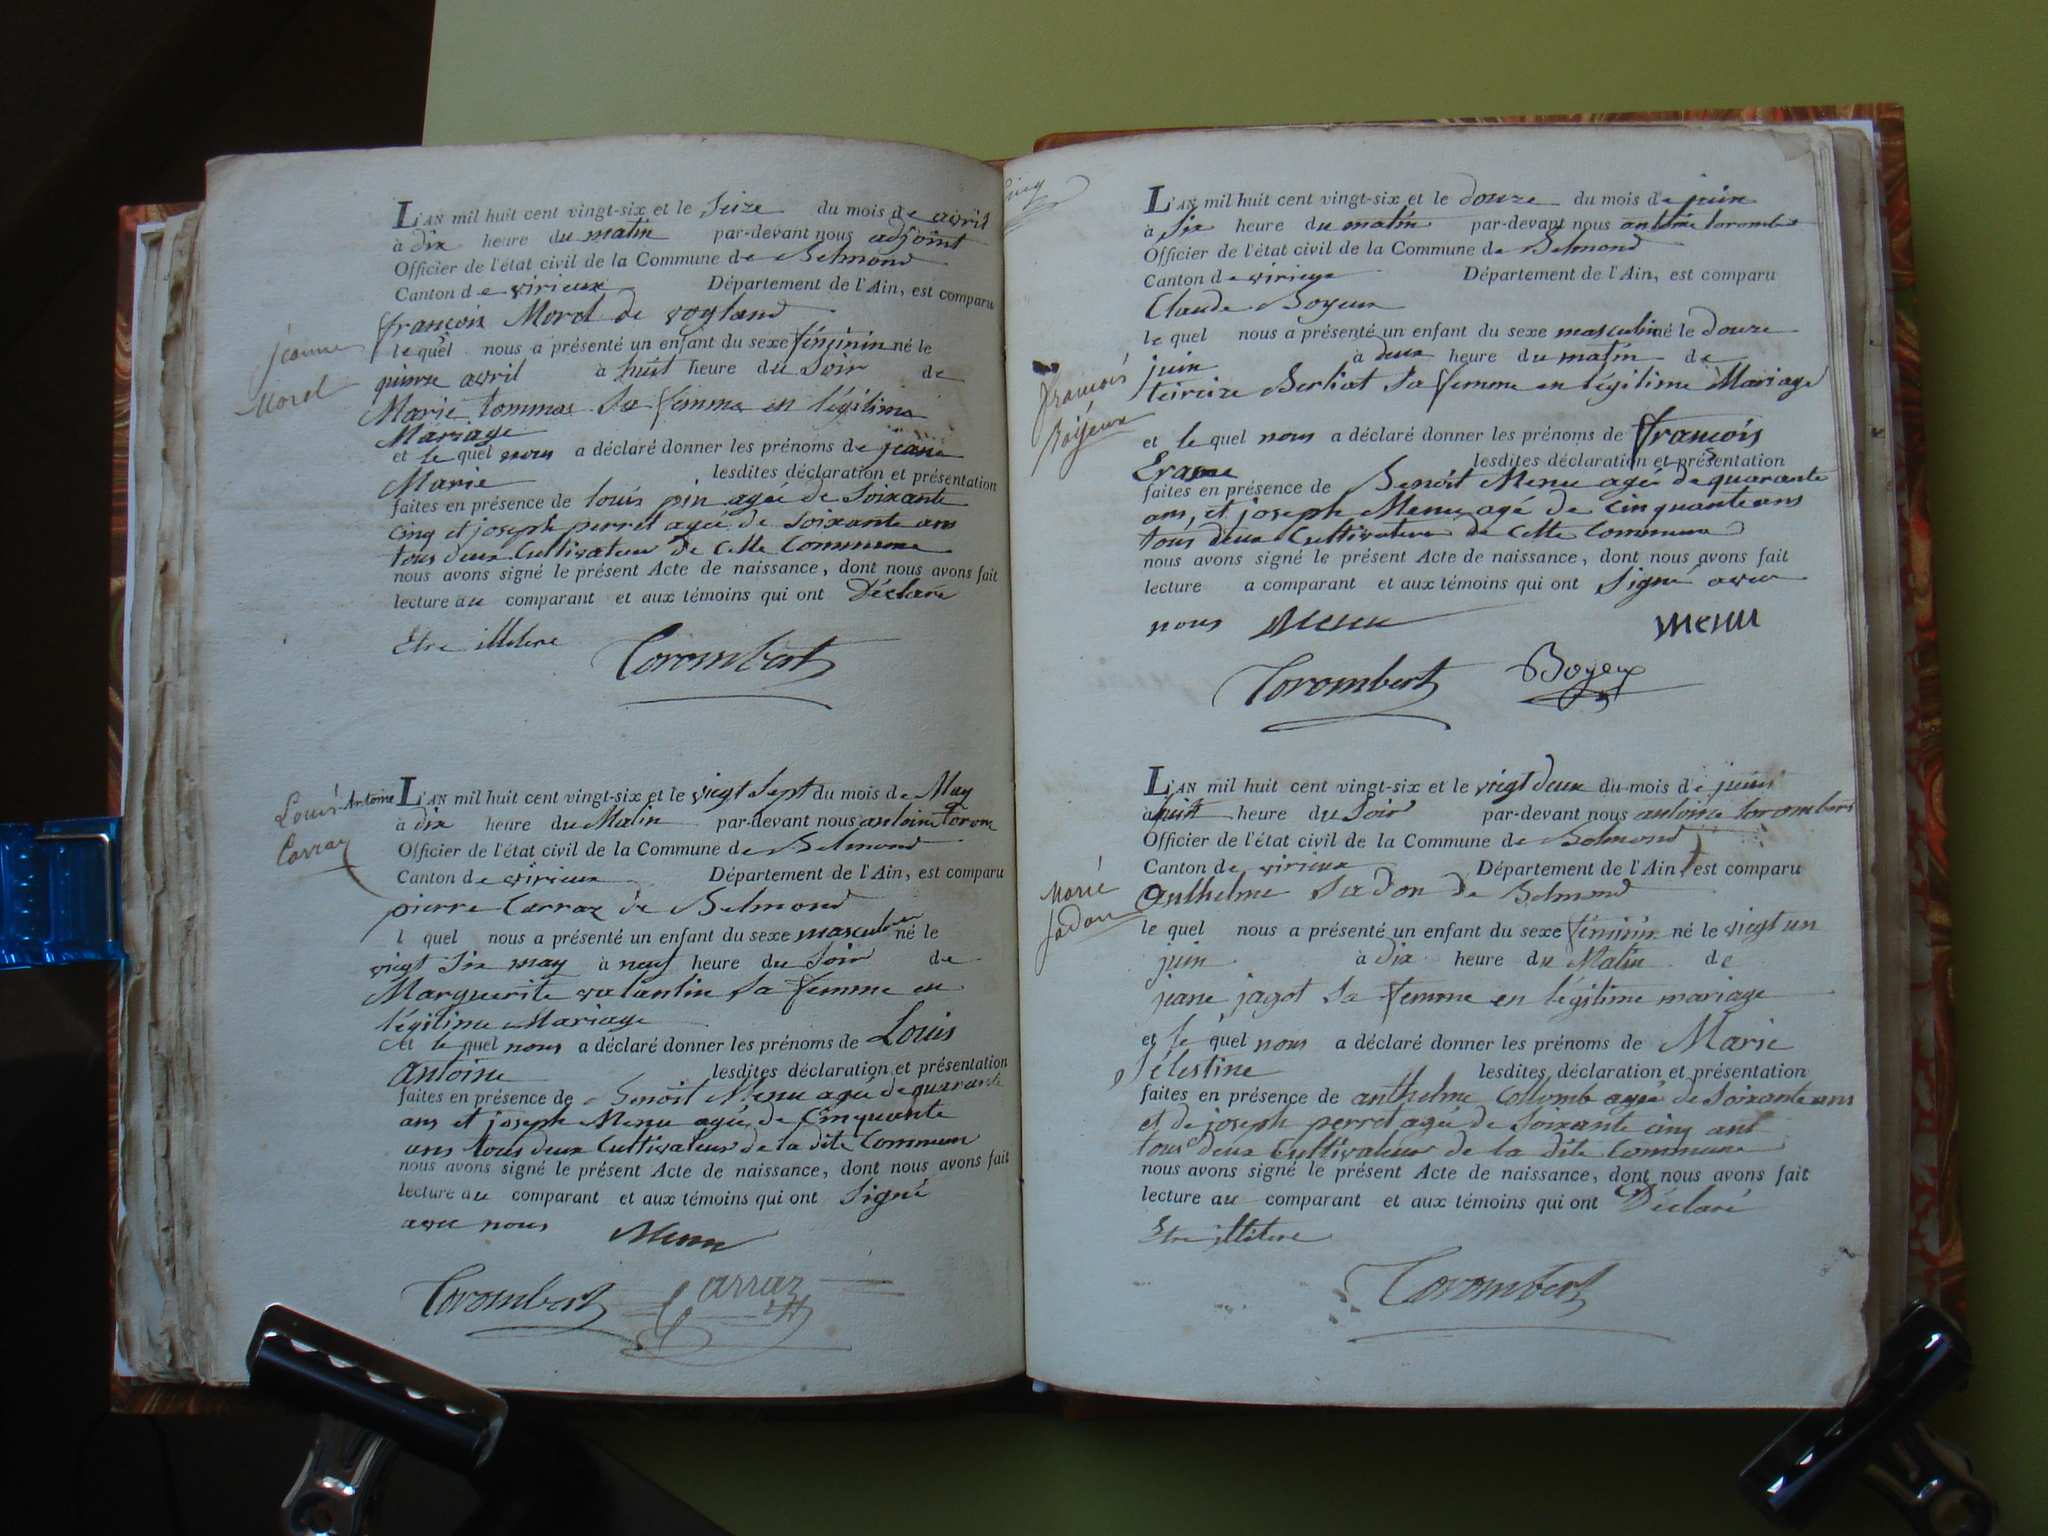 L'AN mil huit cent vingt-six et le Seize du mois de avril
à dix heure du matin par-devant nous adjoint
Officier de l'état civil de la Commune de Belmond
Canton de virieux Département de l'Ain, est comparu
françois Morel de vogland
le quel nous a présenté un enfant du sexe féminin né le
quinze avril à huit heure du Soir de
Marie tommas Sa femme en légitime
Mariage
et le quel nous a déclaré donner les prénoms de jeane
Marie lesdites déclaration et présentation
faites en présence de louis pin agée de Soixante
cinq et joseph perret agée de Soixante ans
tous deux Cultivateur de Cette Commune
nous avons signé le présent Acte de naissance, dont nous avons fait
lecture au comparant et aux témoins qui ont Déclaré
Etre illitere
Torombert
jeanne
Morel
Louis Antoine
Carraz
L'AN mil huit cent vingt-six et le vigt Sept du mois de May
à dix heure du Matin par-devant nous antoine torom
Officier de l'état civil de la Commune de Belmond
Canton de virieux Département de l'Ain, est comparu
pierre Carraz de Belmond
l quel nous a présenté un enfant du sexe masculin né le
vigt Six may à neuf heure du Soir de
Marguerite valantin Sa femme en
légitime Mariage
et le quel nous a déclaré donner les prénoms de Louis
antoine lesdites déclaration et présentation
faites en présence de Benoit Menu agée de quarante
ans et joseph Menu agée de Cinquante
ans tous deux Cultivateur de la dite Commune
nous avons signé le présent Acte de naissance, dont nous avons fait
lecture au comparant et aux témoins qui ont Signé
avec nous Menu
Torombert Carraz
L'AN mil huit cent vingt-six et le douze du mois de juin
à Six heure du matin par-devant nous antoine torombert
Officier de l'état civil de la Commune de Belmond
Canton de virieux Département de l'Ain, est comparu
Claude Boyeux
le quel nous a présenté un enfant du sexe masculin né le douze
juin à deux heure du matin de
teireize Berliat Sa femme en légitime Mariage
et le quel nous a déclaré donner les prénoms de françois
Erasme lesdites déclaration et présentation
faites en présence de Benoit Menu agé de quarante
ans, et joseph Menu agé de Cinquante ans
tous deux Cultivateur de Cette Commune
nous avons signé le présent Acte de naissance, dont nous avons fait
lecture a comparant et aux témoins qui ont Signé avec
nous Menu Menu
Torombert Boyex
françois
Boijeux
L'AN mil huit cent vingt-six et le vigt deux du mois de juin
à huit heure du Soir par-devant nous antoine torombert
Officier de l'état civil de la Commune de Belmond
Canton de virieux Département de l'Ain, est comparu
Anthelme Jadon de Belmond
le quel nous a présenté un enfant du sexe féminin né le vigt un
juin à dix heure du Matin de
jeane jagot Sa femme en légitime mariage
et le quel nous a déclaré donner les prénoms de Marie
Sélestine lesdites déclaration et présentation
faites en présence de anthelme Collomb agée de Soixante ans
et de joseph perret agée de Soixante cinq ans
tous deux Cultivateur de la dite Commune
nous avons signé le présent Acte de naissance, dont nous avons fait
lecture au comparant et aux témoins qui ont Déclaré
Etre illitere
Torombert
Marie
Jadon